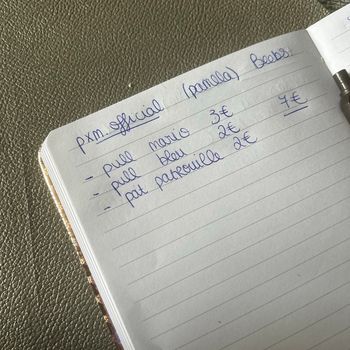 pxm.official (pamela) Beebs.
- pull mario 3€
- pull bleu 2€ 7€
- pat patrouille 2€